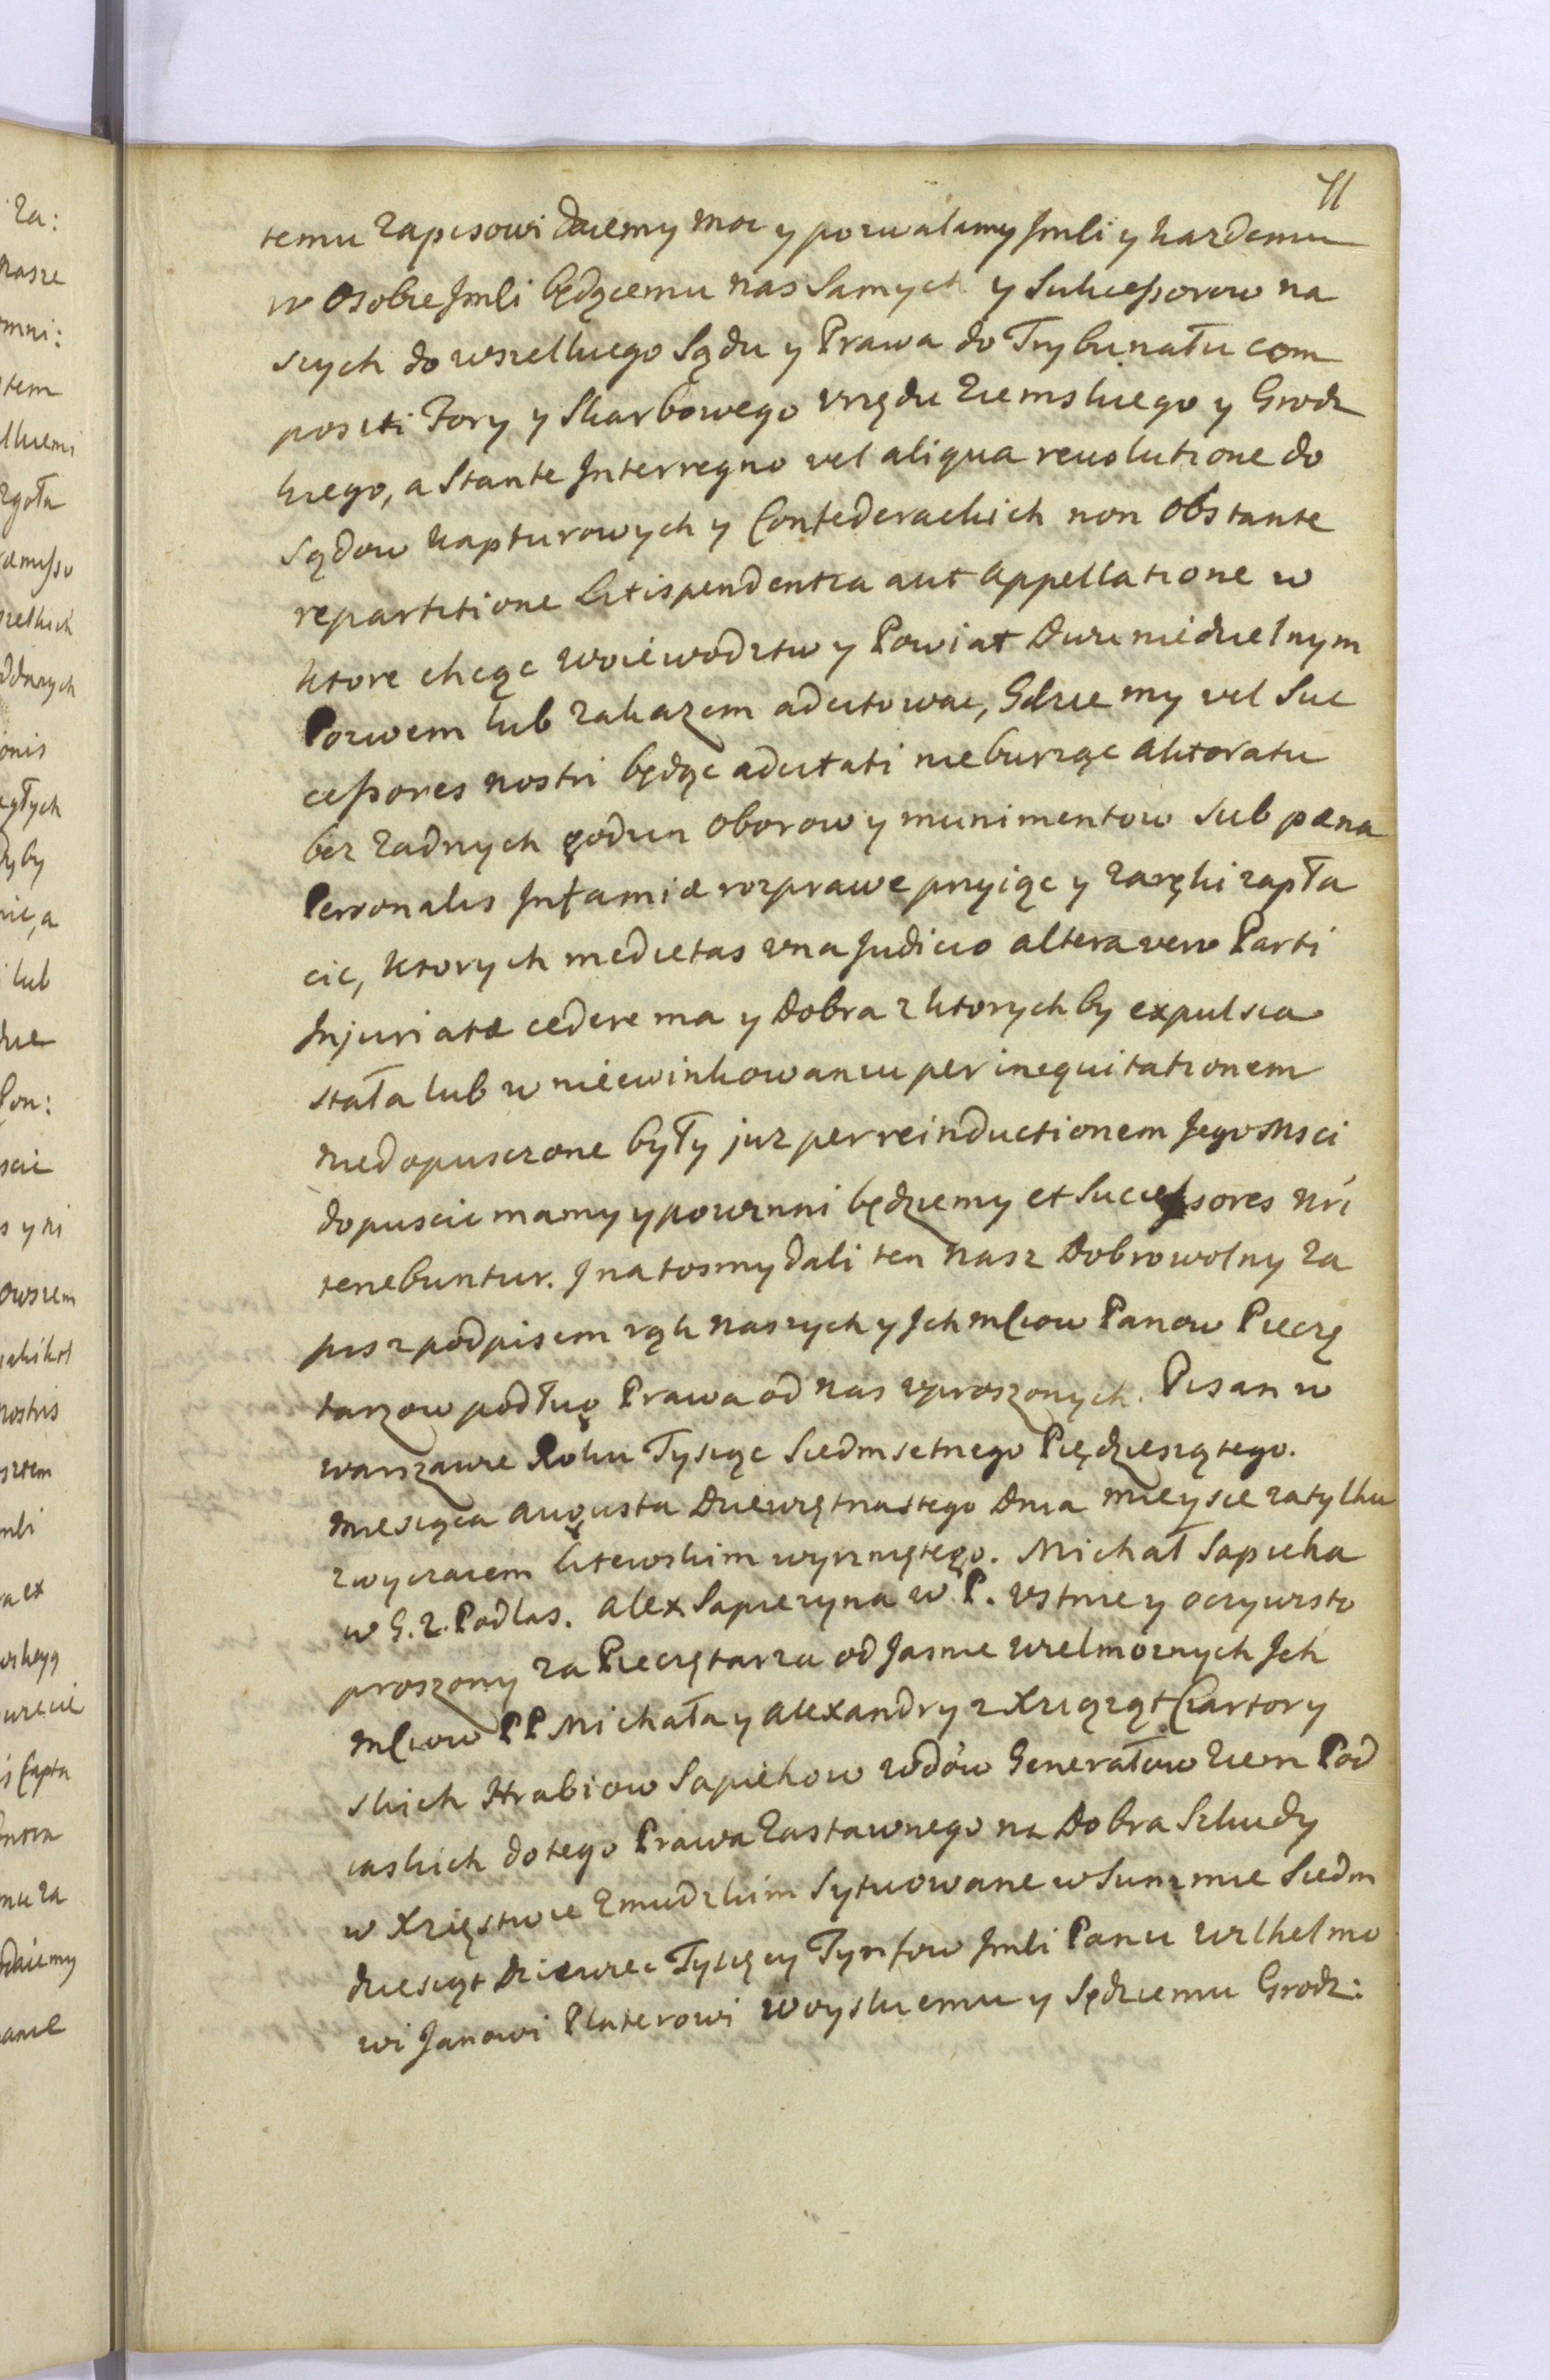 11
temu Zapisowi daiemy moc y pozwalamy Jmli y każdemu
w Osobie Jmli będącemu nas Samych y Sukcessorow na
szych do wszelkiego Sądu y Prawa do Trybunału com
positi Fory y Skarbowego vrzędu Ziemskiego y Grodz
kiego, a Stante Interregno vel aliqua revolutione do
Sądow kapturowych y Confederackich non obstante
repartitione Litispendentia aut Appellatione w
ktore chcąc woiewodztw y Powiat Dwuniedzielnym
Pozwem lub zakazem adcitować, Gdzie my vel Suc
cessores nostri będąc adcitati nieburząc Aktoratu
bez żadnych godzin oborow y munimentow sub pæna
Personalis Infamiæ rozprawe przyiąc y zaręki zapła
cić, ktorych medietas vna Judicio altera vero Parti
Injuriatæ cedere ma y Dobra z ktorych by expulsia
stała lub w niewinkowaniu per inequitationem
niedopuszczone były już per reinductionem Jegomsci
dopuscić mamy y powinni będziemy et Successores nri
tenebuntur. J na tosmy dali ten nasz Dobrowolny Za
pis z podpisem rąk naszych y Jchmciow Panow Pieczę
tarzow podług Prawa od nas vproszonych. Pisan w
warszawie Roku Tysiąc Siedmsetnego Pięćdziesiątego.
miesiąca augusta Dziewiętnastego Dnia mieysce zatylku
zwyczaiem Litewskim wyrzniętego. Michał Sapieha
w G. Z. Podlas. Alex Sapieżyna w. P. Vstnie y oczywisto
proszony za Pieczętarza od Jasnie wielmożnych Jch
mciow PP Michała y Alexandry z Xziążąt Czartory
skich Hrabiow Sapiehow wdów Generałow Ziem Pod
laskich do tego Prawa Zastawnego na Dobra Szkudy
w Xzięstwie Zmudzkim Sytuowane w Summie Siedm
dziesiąt Dziewięc Tysięcy Tynfow Jmli Panu Wilhelmo
wi Janowi Platerowi woyskiemu y Sędziemu Grodz: